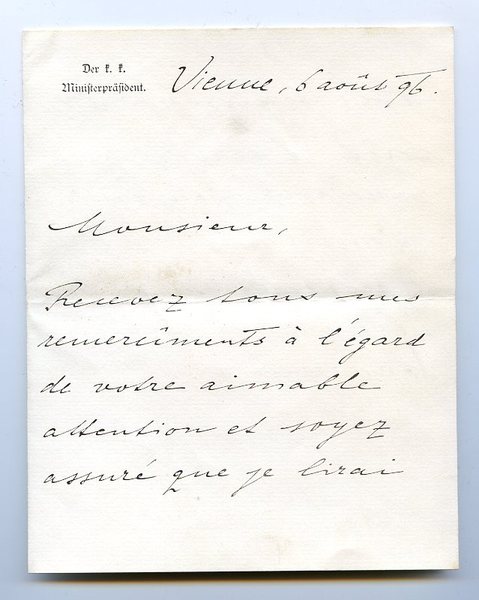 Der k. k.
Ministerpräsident.
Vienne, 6 août 96.
Monsieur,
Recevez tous mes
remercîments à l'égard
de votre aimable
attention et soyez
assuré que je lirai